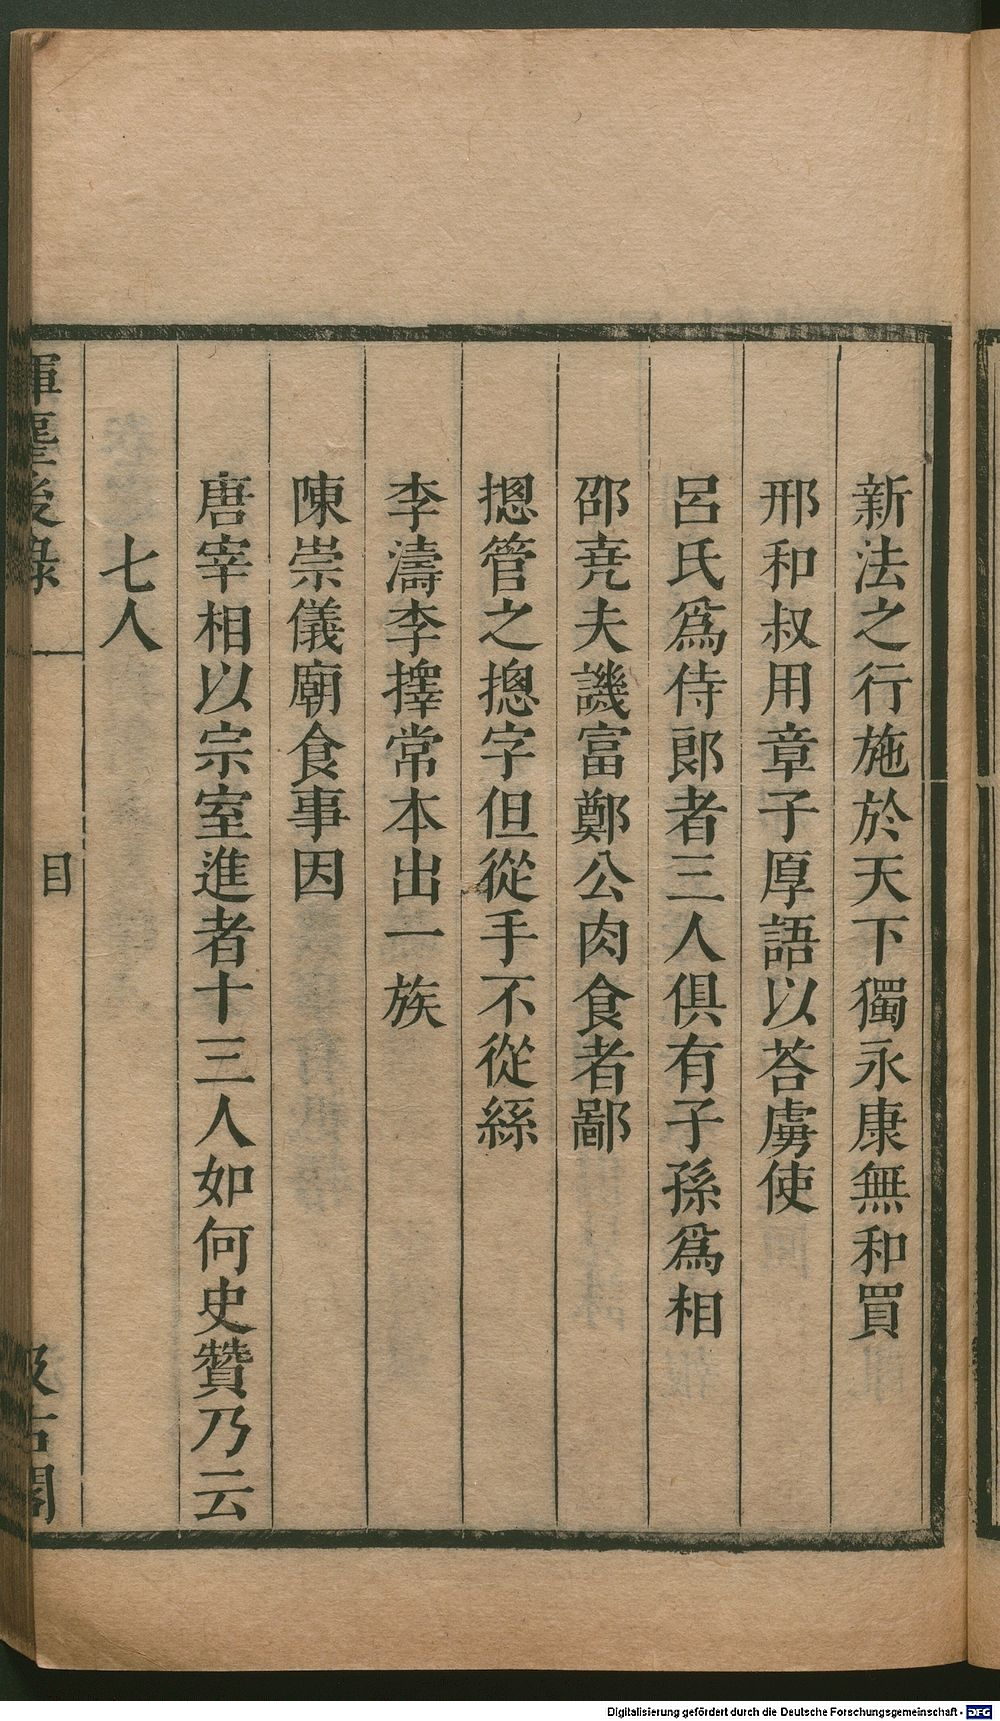 新法之行施於天下獨永康無和買
邢和叔用章子厚語以荅虜使
呂氏爲侍郎者三人俱有子孫爲相
邵堯夫譏富鄭公肉食者鄙
摠管之摠字但從手不從絲
李濤李擇常本出一族
陳崇儀廟食事因
唐宰相以宗室進者十三人如何史贊乃云
七人
揮麈後錄
目
汲古閣
Digitalisierung gefördert durch die Deutsche Forschungsgemeinschaft - DFG